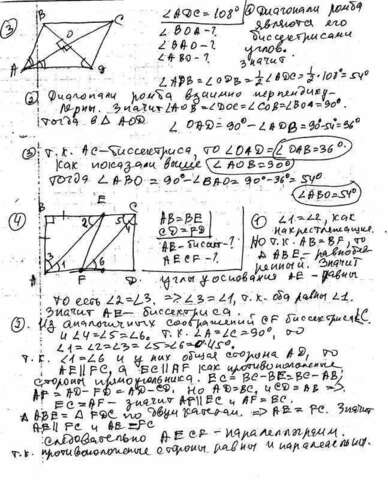 ③ B C O A D
∠ADC = 108°
∠BOA - ?
∠BAO - ?
∠ABO - ?
① Диагонали ромба
являются его
биссектрисами
углов.
Значит
∠ADB = ∠ODB = 1/2 ∠ADC = 1/2 · 108° = 54°
② Диагонали ромба взаимно перпендику-
лярны. Значит ∠AOB = ∠DOC = ∠COB = ∠BOA = 90°.
Тогда в △ AOD.
∠OAD = 90° - ∠ADB = 90 - 54 = 36°
③ т.к. AC - биссектриса, то ∠OAD = ∠OAB = 36°.
Как показали выше ∠AOB = 90°
Тогда ∠ABO = 90° - ∠BAO = 90° - 36° = 54°
∠ABO = 54°
④ B E C 2 5 4 3 1 6 A F D
AB = BE
CD = FD
AE - биссект - ?
AECF - ?
① ∠1 = ∠2, как
накрестлежащие.
Но т.к. AB = BF, то
△ ABE - равнобед
ренный. Значит
углы у основания AE - равны
то есть ∠2 = ∠3. => ∠3 = ∠1, т.к. оба равны ∠1.
Значит AE - биссектриса.
② Из аналогичных соображений CF биссектриса ∠C
и ∠4 = ∠5 = ∠6. т.к. ∠A = ∠C = 90°, то
∠1 = ∠2 = ∠3 = ∠5 = ∠6 = 45°.
т.к. ∠1 = ∠6 и у них общая сторона AD, то
AE ∥ FC, а EC ∥ AF как противоположные
стороны прямоугольника. EC = BC - BE = BC - AB;
AF = AD - FD = AD - CD. Но AD = BC, и CD = AB =>
EC = AF - значит AF ∥ EC и AF = EC.
△ ABE = △ FDC по двум катетам. => AE = FC. Значит
AE ∥ FC и AE = FC
следовательно AECF - параллелограмм.
т.к. противоположные стороны равны и параллельны.